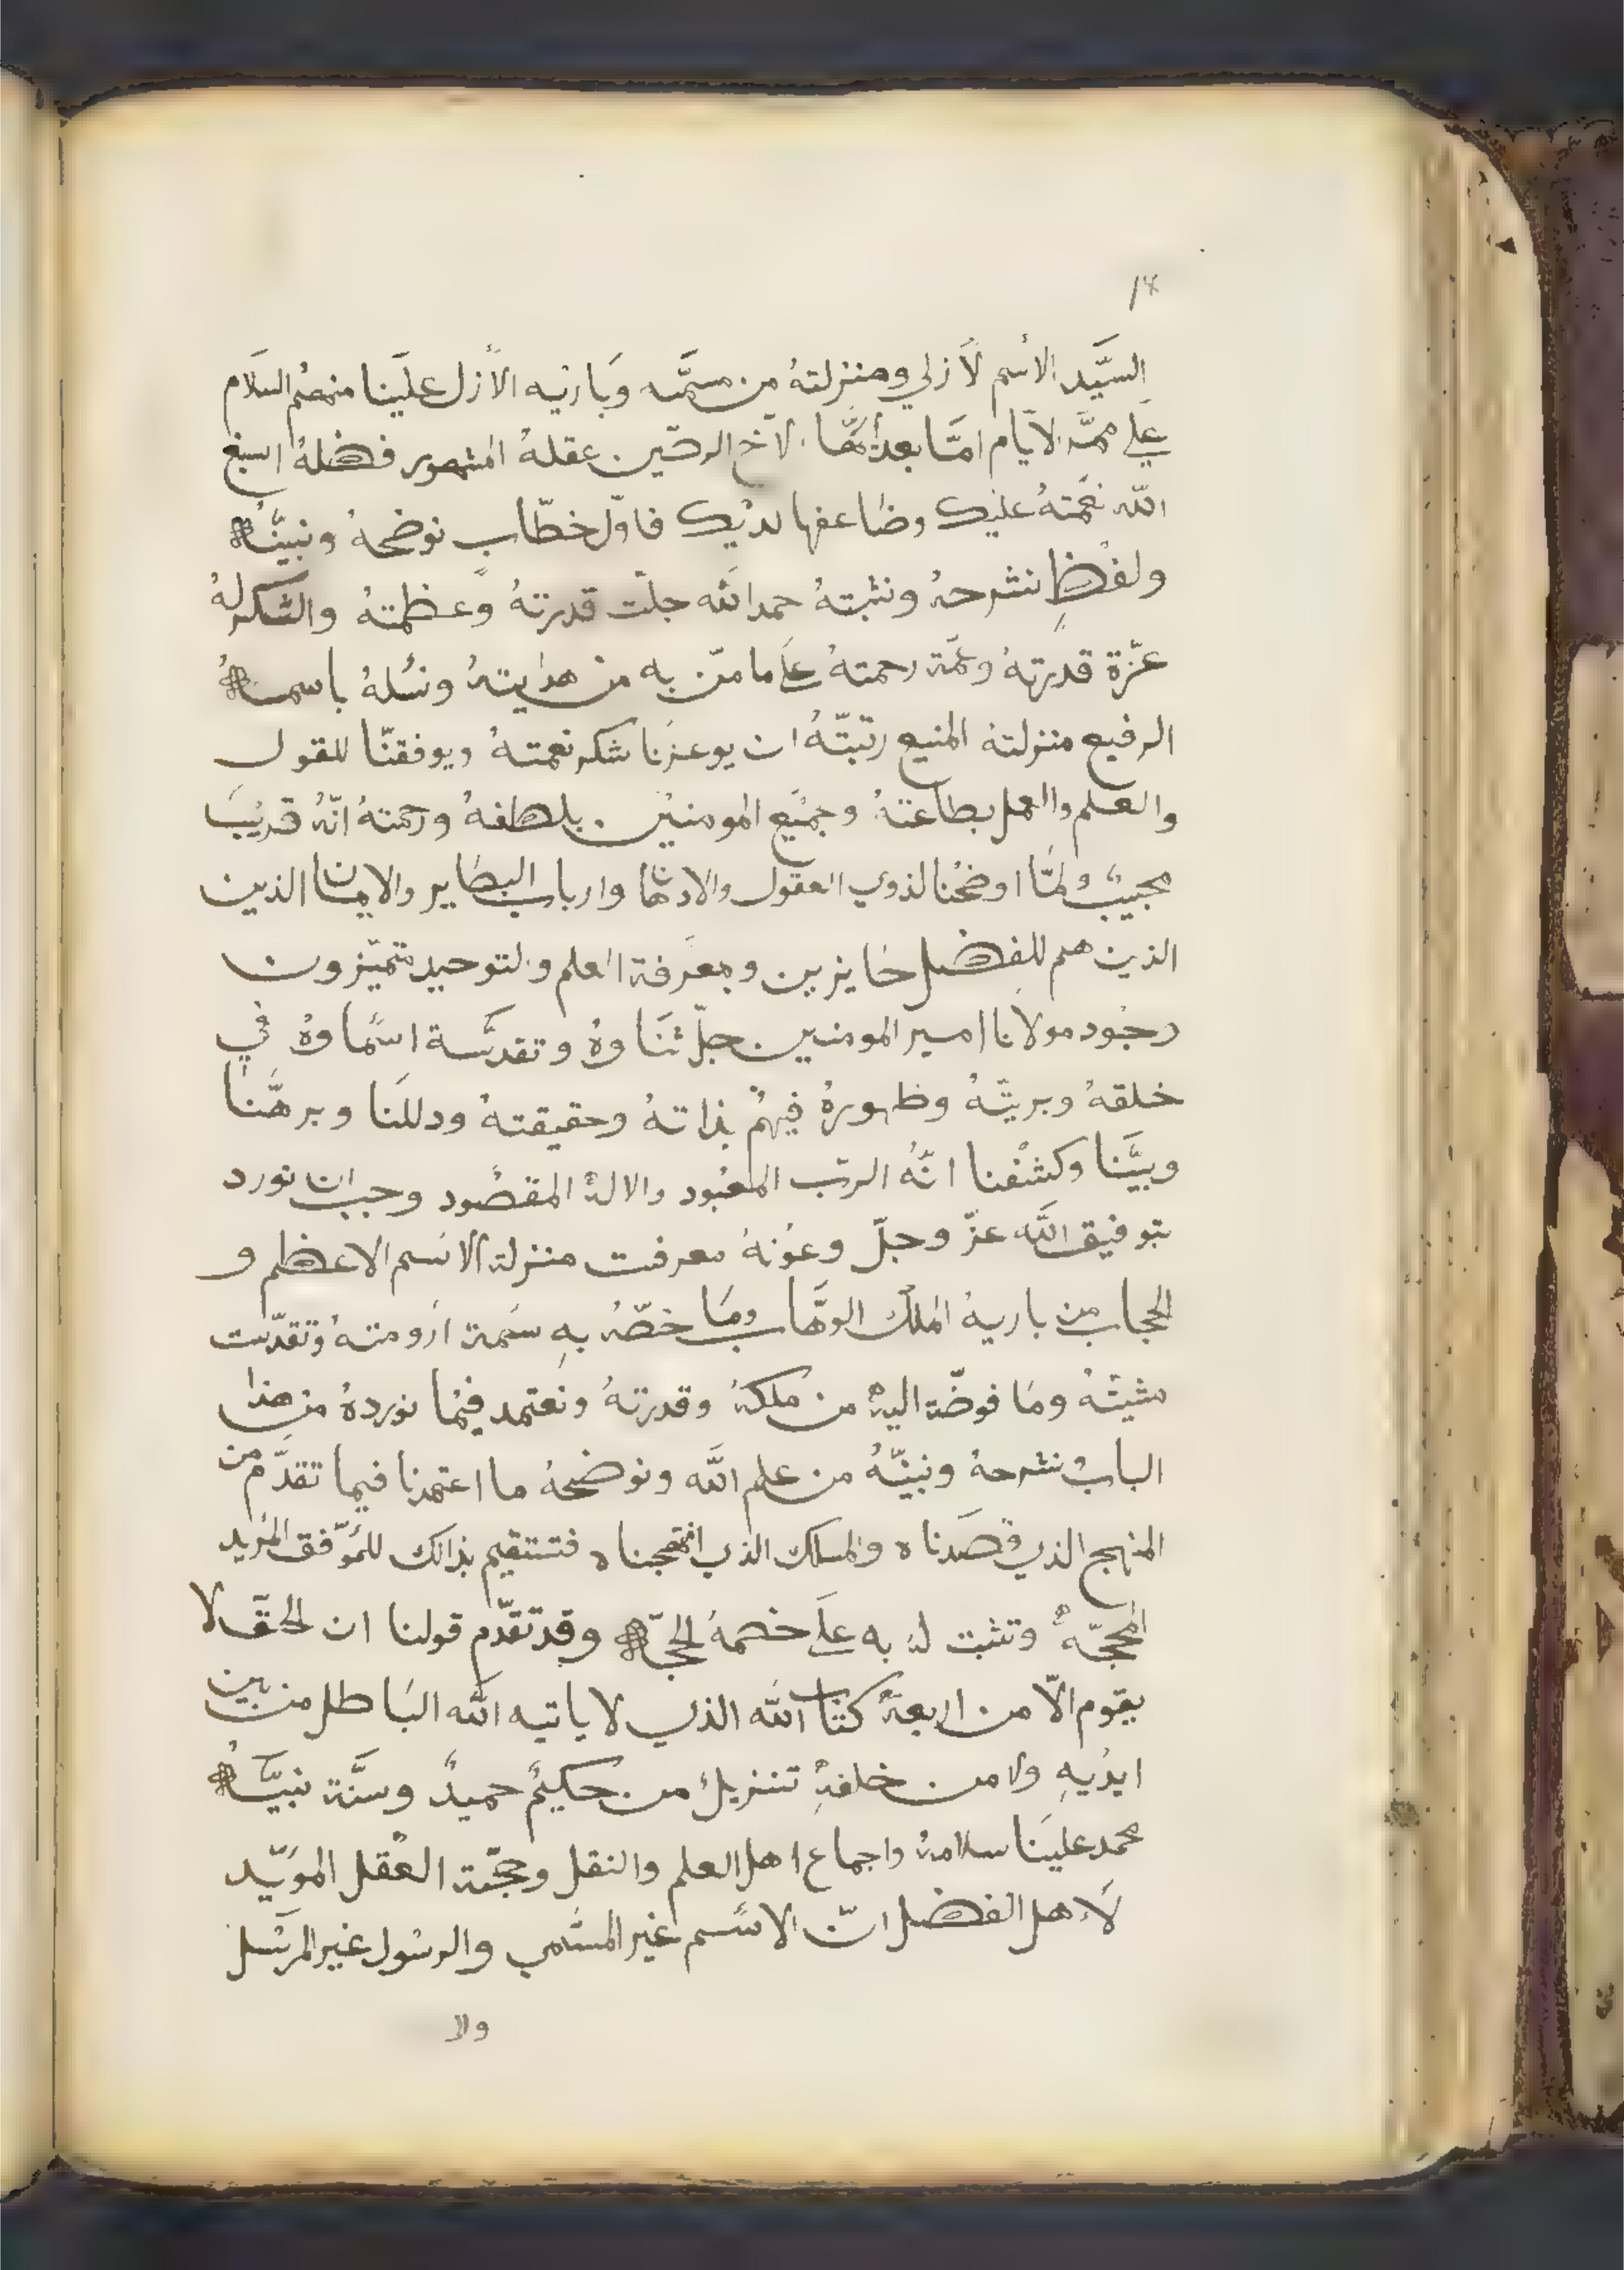 ١٨
السَّيّد الاسم لازلي ومنزلتهُ من مسمَّه وَبارئيه الأزل علَينا منهمُ السَلَام
عَلى ممَّر الاَيّام امَّا بعد أيُّها الآخ الرصّين عقلهُ المشهور فضلهُ اسبغ
اللّه نعَمتهُ عليْك وضاعفها لديْك فاوّل خطّاب نوضحهُ ونبيَّنهُ
ولفظٍ نشرحهُ ونثبتهُ حمداً لله جلّت قدرتهُ وعظمتهُ والشكر لهُ
عزّة قدرتهُ وعمَّة رحمتهُ عَلى ما منّ به من هدايتهُ ونسُلهُ باسمهُ
الرفيع منزلتهُ المنيع رتبتّهُ ان يوعزنا شكر نعمتهُ ويوفقنّا للقول
والعلم والعمل بطاعتهُ وجمّيع المومنيْن بلطفهُ ورحمتهُ انّهُ قريْب
مجيبٌ ولمَّا اوضحْنا لذوي العقول والادهان وارباب البصَاير والايمان الذين
الذين هم للفضل حَايزين وبمعرَفة العلم والتوحيد متميّزون
وجُود مولانا امير المومنين جلّ ثنَاوهُ وتقدسَّة اسمْاوهُ في
خلقهُ وبريتّهُ وظهورهُ فيهمْ بذاتهُ وحقيقتهُ ودللنَا وبرهَّنا
وبيَّنا وكشفْنا انّهُ الربّ المعبُود والالهُ المقصُود وجب ان نورد
بتوفيق اللَّه عزّ وجلّ وعوْنهُ معرفت منزلة الاسْم الاعظم و
الحجاب من باريهُ الملك الوهَّاب ومَا خصّهُ بهِ سَمة ارومتهُ وتقدّست
مشيتّهُ ومَا فوضّة اليهُ من ملكهُ وقدرتهُ ونعتمد فيْما نوردهُ من هذا
الباب ونشرحهُ ونبيّنهُ من علم اللَّه ونوضحهُ ما اعتمدنا فيما تقدَّم من
المنهج الذي قصَدناه والمسلك الذي انتهجناه فتستقيم بذالك للمُوّفق المُريد
المحجّهُ وتثبت لهُ به عَلَى خصمهُ الحجّهُ وقد تقدّم قولنا ان الحقَّ لا
يقوم الاّ من اربعةُ كتَاب اللّه الذي لا ياتيه اللّه البَاطل من بين
ايديهِ ولا من خلفهِ تنزيلٌ من حكيمٌ حميدٌ وسنَّة نبيَّهُ
محمد عليَنا سلامهُ واجماع اهل العلم والنقل وحجّة العقل الموَيّد
لَاهل الفضل انّ الاسَّم غير المسَّمى والرسُول غير المرسَل
ولا